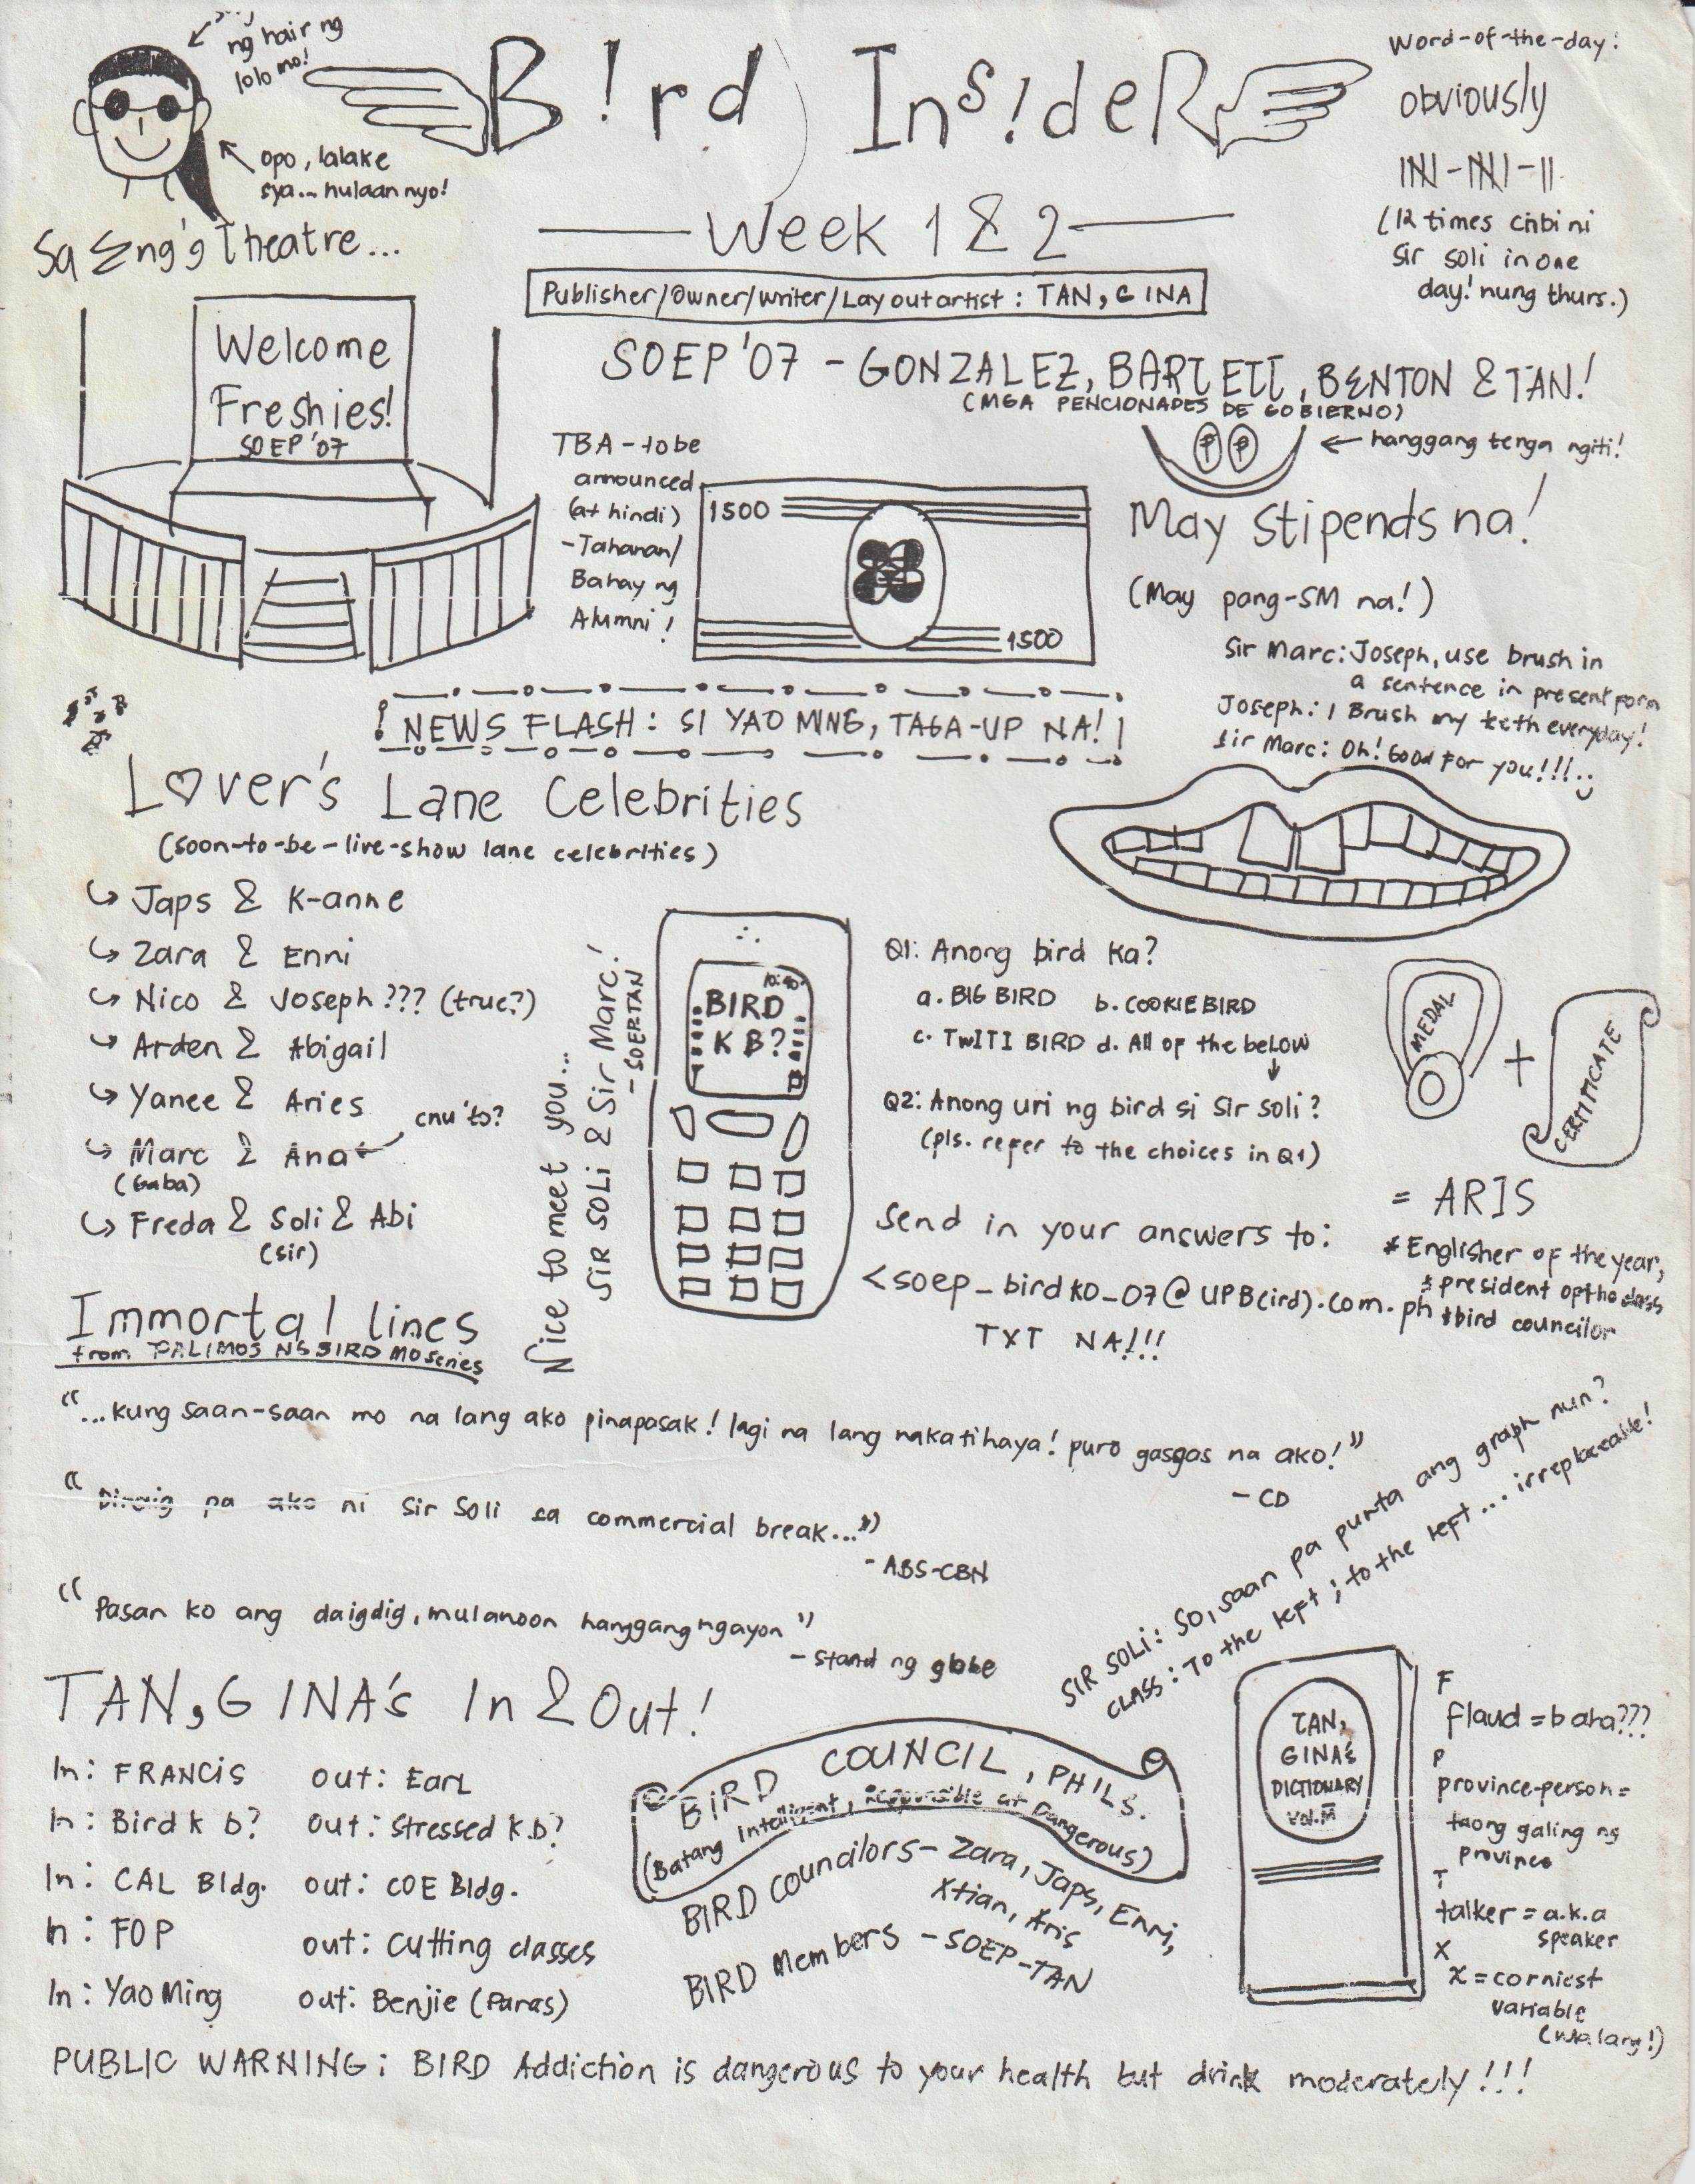 ng hair ng
lolo mo!
opo, lalake
sya... hulaan nyo!
Sa Eng'g Theatre...
B!rd Ins!deR
Week 1 & 2
Publisher/Owner/Writer/Layout artist : TAN, G INA
Word-of-the-day:
obviously
(12 times cnbi ni
Sir Soli in one
day! nung thurs.)
Welcome
Freshies!
SOEP '07
SOEP '07 - GONZALEZ, BARTLETT, BENTON & TAN!
(MGA PENCIONADES DE GOBIERNO)
P P
hanggang tenga ngiti!
TBA - to be
announced
(at hindi)
- Tahanan/
Bahay ng
Alumni!
1500
1500
May Stipends na!
(May pang-SM na!)
Sir Marc: Joseph, use brush in
a sentence in present form
Joseph: I Brush my teeth everyday!
Sir Marc: Oh! Good For you!!! :)
! NEWS FLASH : SI YAO MING, TAGA-UP NA! !
Lover's Lane Celebrities
(soon-to-be-live-show lane celebrities)
Japs & K-anne
Zara & Enni
Nico & Joseph ??? (true?)
Arden & Abigail
Yanee & Aries
cnu 'to?
Marc & Ana
(Gaba)
Freda & Soli & Abi
(sir)
Nice to meet you...
SIR SOLI & Sir Marc!
- SOEPTAN
10:40
BIRD
K B?
Q1: Anong bird ka?
a. BIG BIRD b. COOKIE BIRD
c. TWITI BIRD d. All of the beLOW
Q2: Anong uri ng bird si Sir Soli?
(pls. refer to the choices in Q1)
Send in your answers to:
<soep_birdko_07@UPB(ird).com.ph
TXT NA!!!
MEDAL
+
CERTIFICATE
= ARIS
* Englisher of the year,
* president op tha class
* bird councilor
Immortal lines
from PALIMOS NG BIRD MO series
"...kung saan-saan mo na lang ako pinapasak! lagi na lang nakatihaya! puro gasgas na ako!"
- CD
"Dinaig pa ako ni Sir Soli sa commercial break..."
- ABS-CBN
"Pasan ko ang daigdig, mula noon hanggang ngayon"
- stand ng globe
SIR SOLI: So, saan pa punta ang graph nun?
CLASS: To the left; to the left... irreplaceable!
TAN, G INA's In & Out!
In: FRANCIS out: Earl
In: Bird k b? out: Stressed k b?
In: CAL Bldg. out: COE Bldg.
In: FOP out: Cutting classes
In: Yao Ming out: Benjie (Paras)
BIRD COUNCIL, PHILS.
(Batang Intelligent, Responsible at Dangerous)
BIRD Councilors - Zara, Japs, Enni,
Xtian, Aris
BIRD Members - SOEP-TAN
TAN,
GINA's
DICTIONARY
Vol. M
F
flaud = baha???
P
province-person =
taong galing ng
province
T
talker = a.k.a
speaker
X
x = corniest
variable
(wala lang!)
PUBLIC WARNING: BIRD Addiction is dangerous to your health but drink moderately!!!